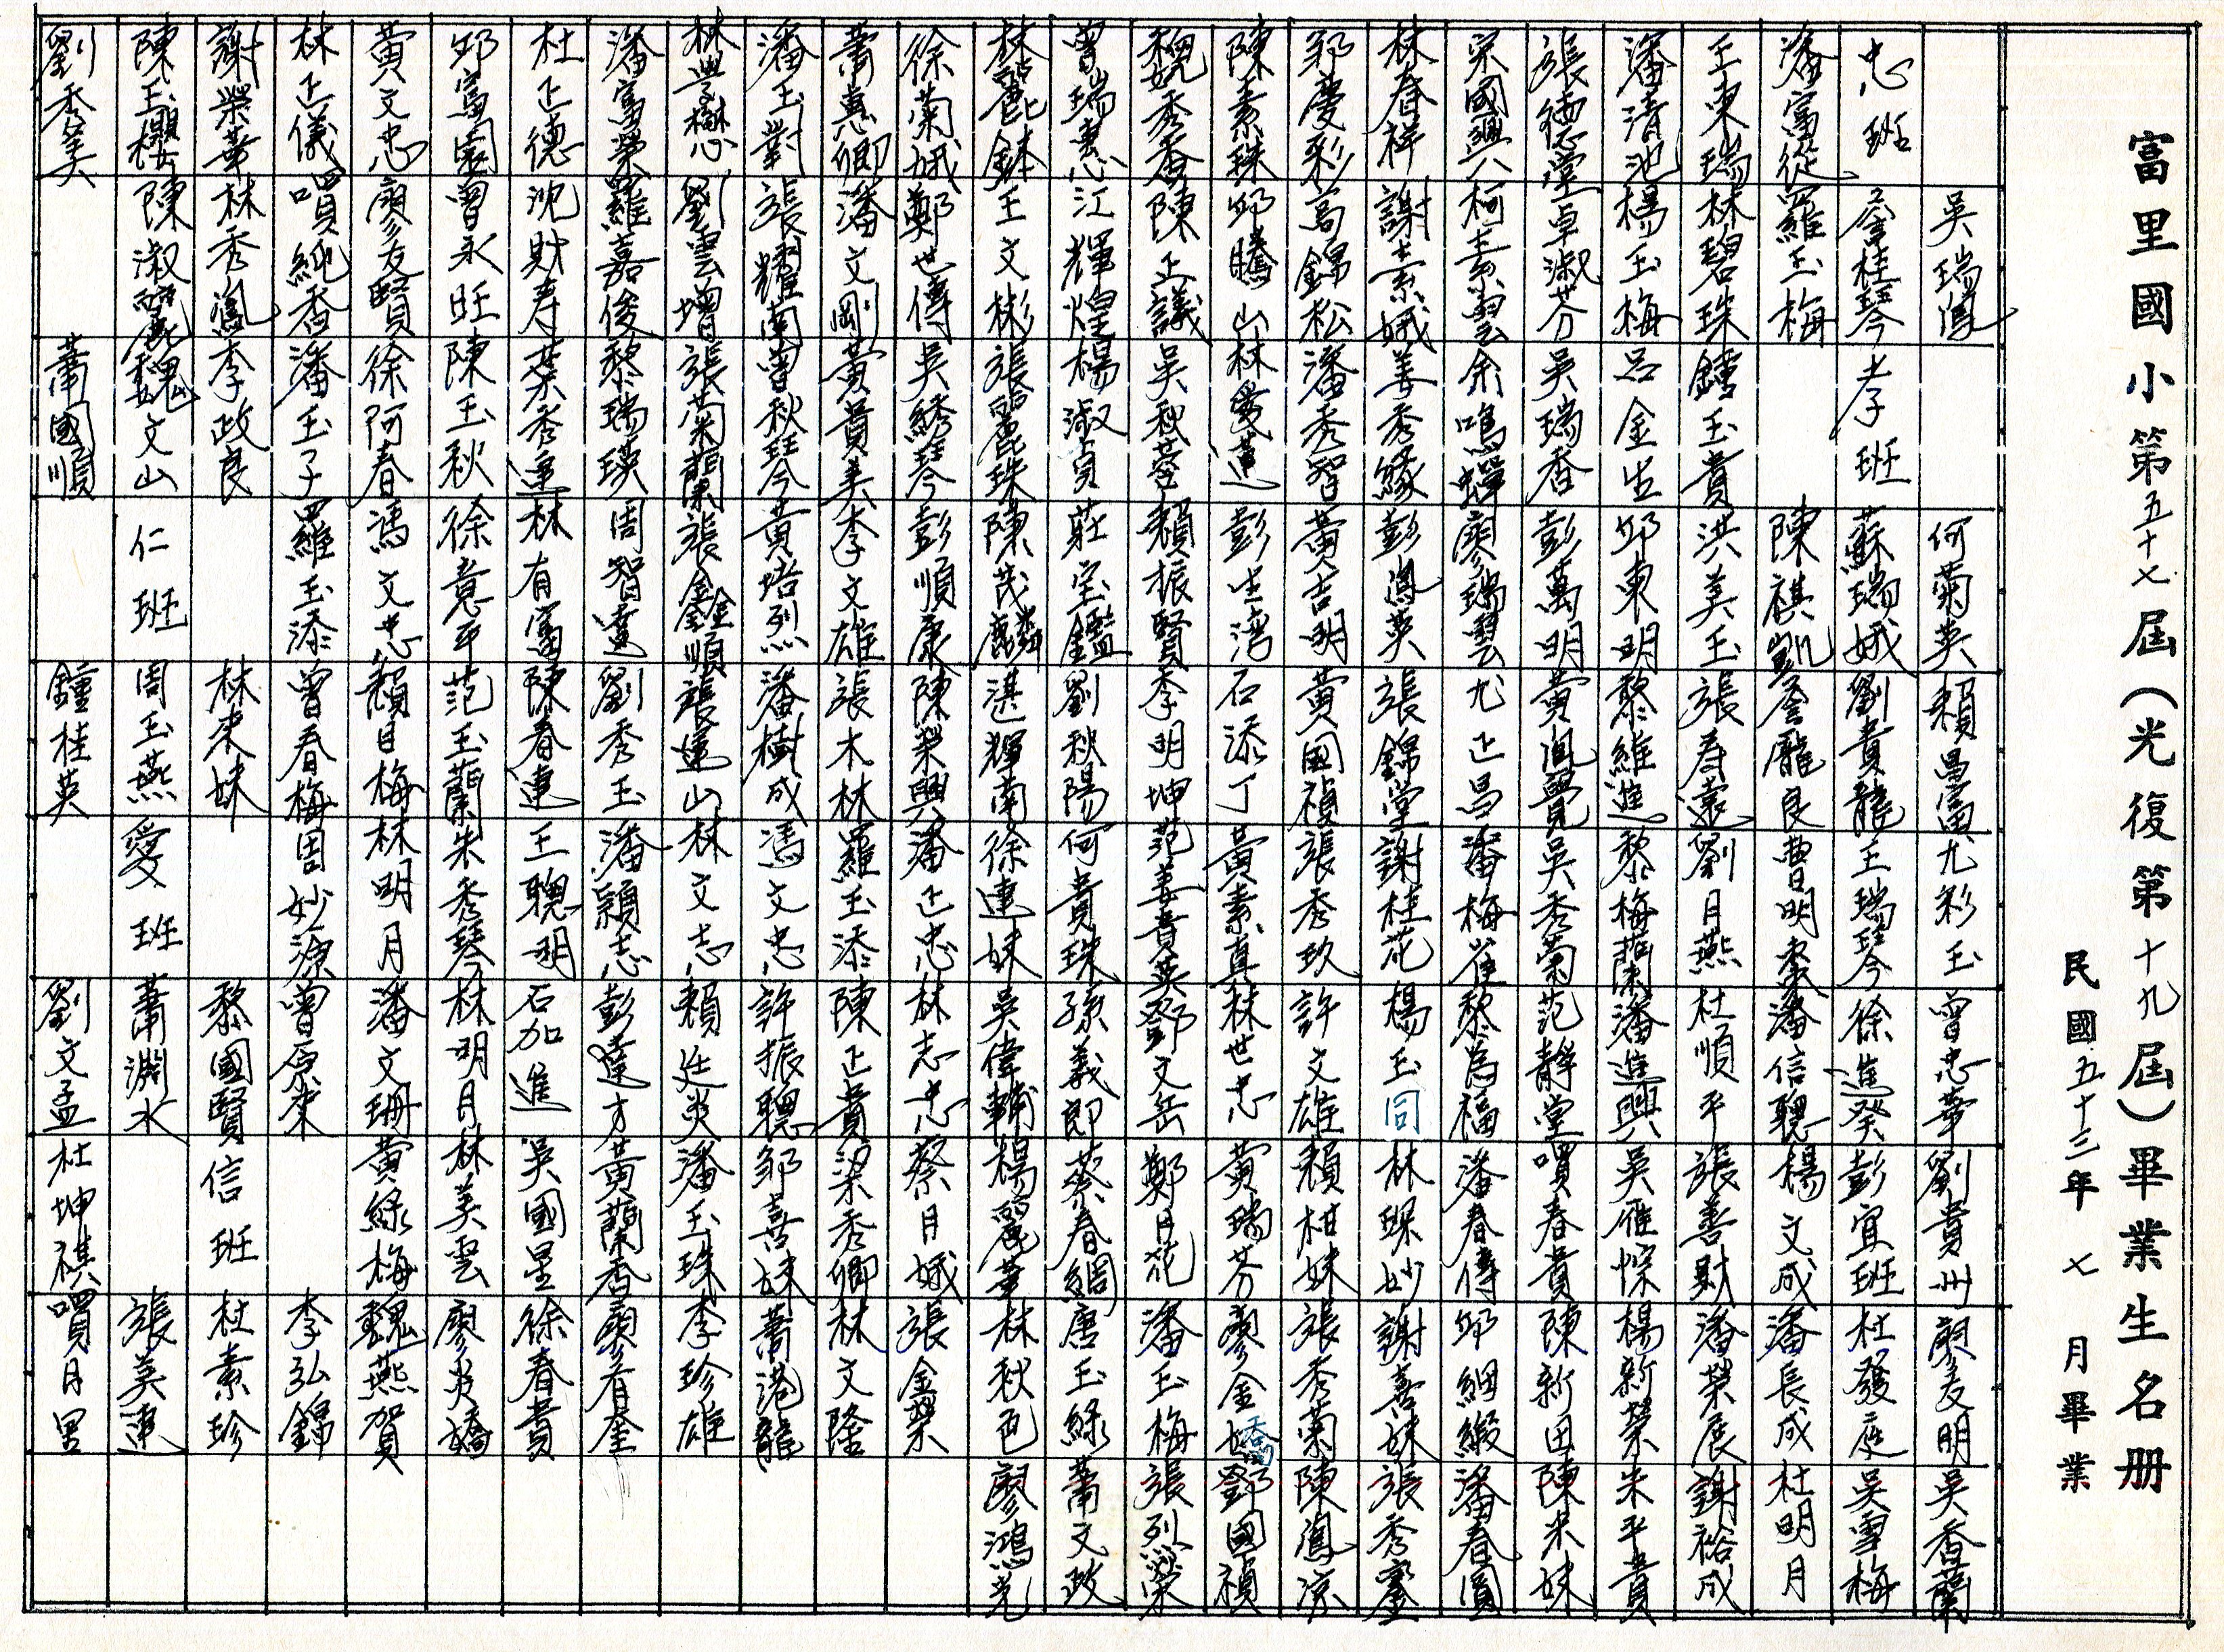 富里國小第五十七屆(光復第十九屆)畢業生名冊
民國五十三年 七 月畢業
吳瑞鳳 何菊英 賴昌富 尤彩玉 曾忠華 劉貴州 廖友明 吳香蘭
忠班 詹桂琴 孝班 蘇瑞娥 劉貴龍 王瑞琴 徐進癸 彭宜班 杜發庭 吳雪梅
潘富從 羅玉梅 陳祺凱 詹龐良 曹明棗 潘信聰 楊文成 潘長成 杜明月
王東瑞 林碧珠 鍾玉貴 洪美玉 張春遠 劉月燕 杜順平 張善財 潘榮展 謝裕成
潘清池 楊玉梅 呂金生 邱東明 黎維進 黎梅蘭 潘進興 吳雁惊 楊新榮 朱平貴
張德堂 卓淑芬 吳瑞香 彭萬明 黃鳳覺 吳秀菊 范靜堂 嘪春貴 陳新田 陳米妹
宋國興 柯素雲 余鳴蟬 廖瑞雲 尤正昌 潘梅雀 黎為福 潘春傳 邱細緞 潘春圓
林春祥 謝素娥 姜秀緣 彭鳳英 張錦堂 謝桂花 楊玉同 林琛妙 謝喜妹 張秀鑾
郭慶彩 高錦松 潘秀智 黃吉明 黃國禎 張秀玖 許文雄 賴柑妹 張秀菊 陳鳳涼
陳素珠 邱騰山 林愛蓮 彭生湧 石添丁 黃素真 林世忠 黃瑞芬 廖金嬌 鄧國禎
魏秀香 陳正議 吳秋蓉 賴振賢 李明坤 范姜貴英 鄧文岳 鄭月花 潘玉梅 張烈榮
曾瑞惠 江輝煌 楊淑貞 莊宝鑑 劉秋陽 何貴珠 孫義郎 蔡春綢 唐玉綠 蕭文政
林麗鉢 王文彬 張麗珠 陳茂麟 湛輝南 徐連妹 吳偉輔 楊麗華 林秋色 廖鴻光
徐菊娥 鄭世傳 吳綉琴 彭順康 陳榮興 潘正忠 林志忠 蔡月娥 張金榮
蕭惠卿 潘文剛 黃貴美 李文雄 張木林 羅玉添 陳正貴 梁秀卿 林文隆
潘玉對 張耀南 曾秋琴 黃培烈 潘樹成 馮文忠 許振聰 邹喜妹 蕭港龍
劉雲增 張菊蘭 張鑫順 張運山 林文志 賴廷炎 潘玉珠 李珍雄
潘富榮 羅嘉俊 黎瑞瑛 周智遠 劉秀玉 潘穎志 彭達方 黃蘭香 廖有奎
杜正德 沈財寿 葉秀連 林有富 陳春連 王聰明 石加進 吳國星 徐春貴
邱富國 曾永旺 陳玉秋 徐意平 范玉蘭 朱秀琴 林明月 林美雲 廖炎嬌
黃文忠 廖友賢 徐阿春 馮文忠 賴目梅 林明月 潘文珊 黃綠梅 魏燕賀
林正儀 嘪純香 潘玉子 羅玉添 曾春梅 周妙源 曾原來 李弘錦
謝榮華 林秀鳳 李政良 林來妹 黎國賢 信班 杜素珍
陳玉櫻 陳淑麗 魏文山 仁班 周玉燕 愛班 蕭淵水 張美連
劉秀美 蕭國順 鍾桂英 劉文孟 杜坤祺 嘪月里